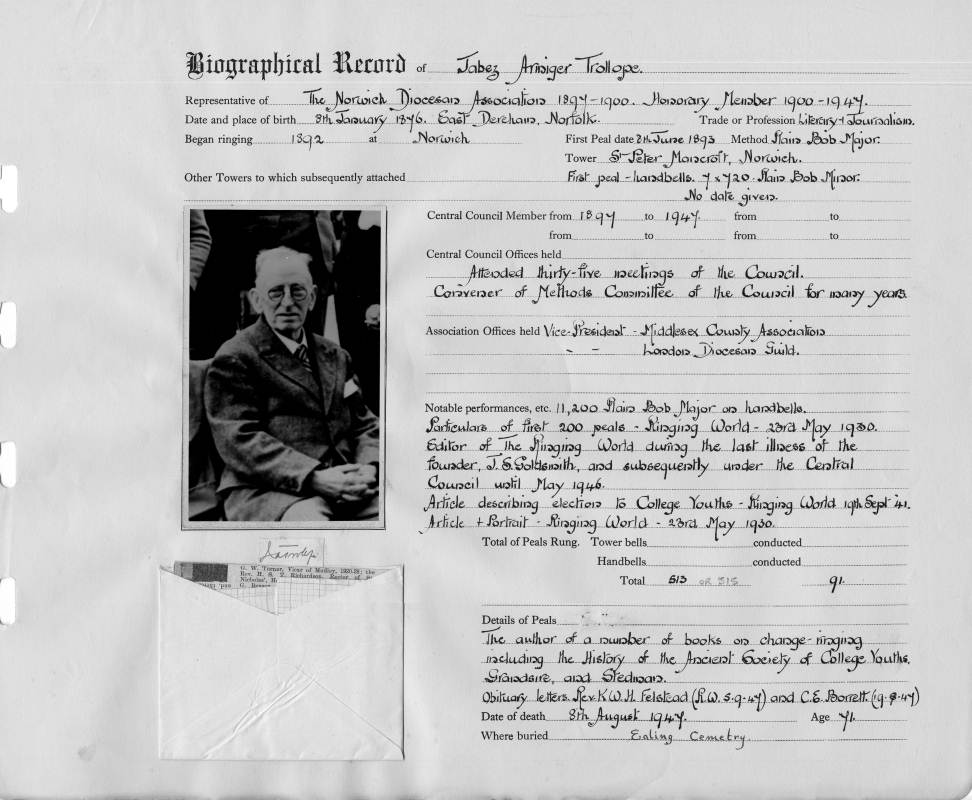 Biographical Record of Jabez Armiger Trollope.
Representative of The Norwich Diocesan Association 1897-1900. Honorary Member 1900-1947.
Date and place of birth 8th January 1876. East Dereham, Norfolk. Trade or Profession Literary + Journalism.
Began ringing 1892 at Norwich First Peal date 8th June 1893 Method Plain Bob Major.
Tower St Peter Mancroft, Norwich.
Other Towers to which subsequently attached First peal - handbells. 7 x 720. Plain Bob Minor.
No date given.
Central Council Member from 1897 to 1947. from to
from to from to
Central Council Offices held
Attended thirty-five meetings of the Council.
Convener of Methods Committee of the Council for many years.
Association Offices held Vice-President - Middlesex County Association
" - London Diocesan Guild.
Notable performances, etc. 11,200 Plain Bob Major on handbells.
Particulars of first 200 peals - Ringing World - 23rd May 1930.
Editor of The Ringing World during the last illness of the
founder, J. S. Goldsmith, and subsequently under the Central
Council until May 1946.
Article describing election to College Youths - Ringing World 19th Sept '41.
Article + Portrait - Ringing World - 23rd May 1930.
Total of Peals Rung. Tower bells conducted
Handbells conducted
Total 513 OR 515 91.
Details of Peals
The author of a number of books on change-ringing
including the History of the Ancient Society of College Youths,
Grandsire, and Stedman.
Obituary letters. Rev. K. W. H. Felstead (R.W. 5.9.47) and C. E. Borrett.
Date of death 8th August 1947. Age 71.
Where buried Ealing Cemetry.
G. W. Turner, Vicar of 1920-28; the
Rev. H. S. T. Richardson, Rector of
Nicholas',